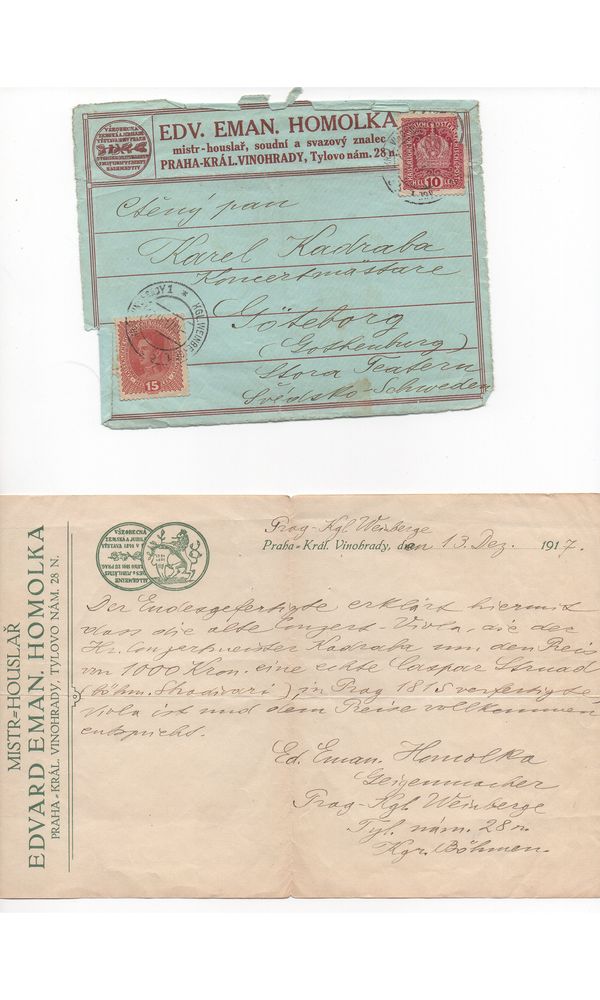 EDV. EMAN. HOMOLKA
mistr-houslař, soudní a svazový znalec
PRAHA-KRÁL. VINOHRADY, Tylovo nám. 28 n.
10
Ctěný pan
Karel Kadraba
Koncertmästare
Göteborg
(Gothenburg)
Stora Teatern
Švédsko-Schweden
KGL. WEINBE
15
MISTR=HOUSLAŘ
EDVARD EMAN. HOMOLKA
PRAHA-KRÁL. VINOHRADY, TYLOVO NÁM. 28 N.
VŠEOBECNÁ
ZEMSKÁ
Prag-Kgl. Weinberge
Praha-Král. Vinohrady, den 13 Dez. 1917.
Der Endesgefertigte erklärt hiermit
dass die alte Conzert-Viola, die der
Hr. Conzertmeister Kadraba um den Preis
von 1000 Kron. eine echte Caspar Strnad
(böhm. Stradivari) in Prag 1815 verfertigte
Viola ist und dem Preise vollkommen
entspricht.
Ed. Eman. Homolka
Geigenmacher
Prag-Kgl. Weinberge
Tyl. nám. 28 n.
Kgr. Böhmen.